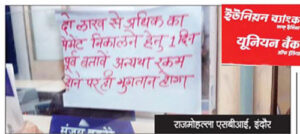 दो लाख से अधिक का
पेमेंट निकालने हेतु 1 दिन
पूर्व बतावे अन्यथा रकम
होने पर ही भुगतान होगा
युनियन बँक
यूनियन बैंक
राजमोहल्ला एसबीआई, इंदौर